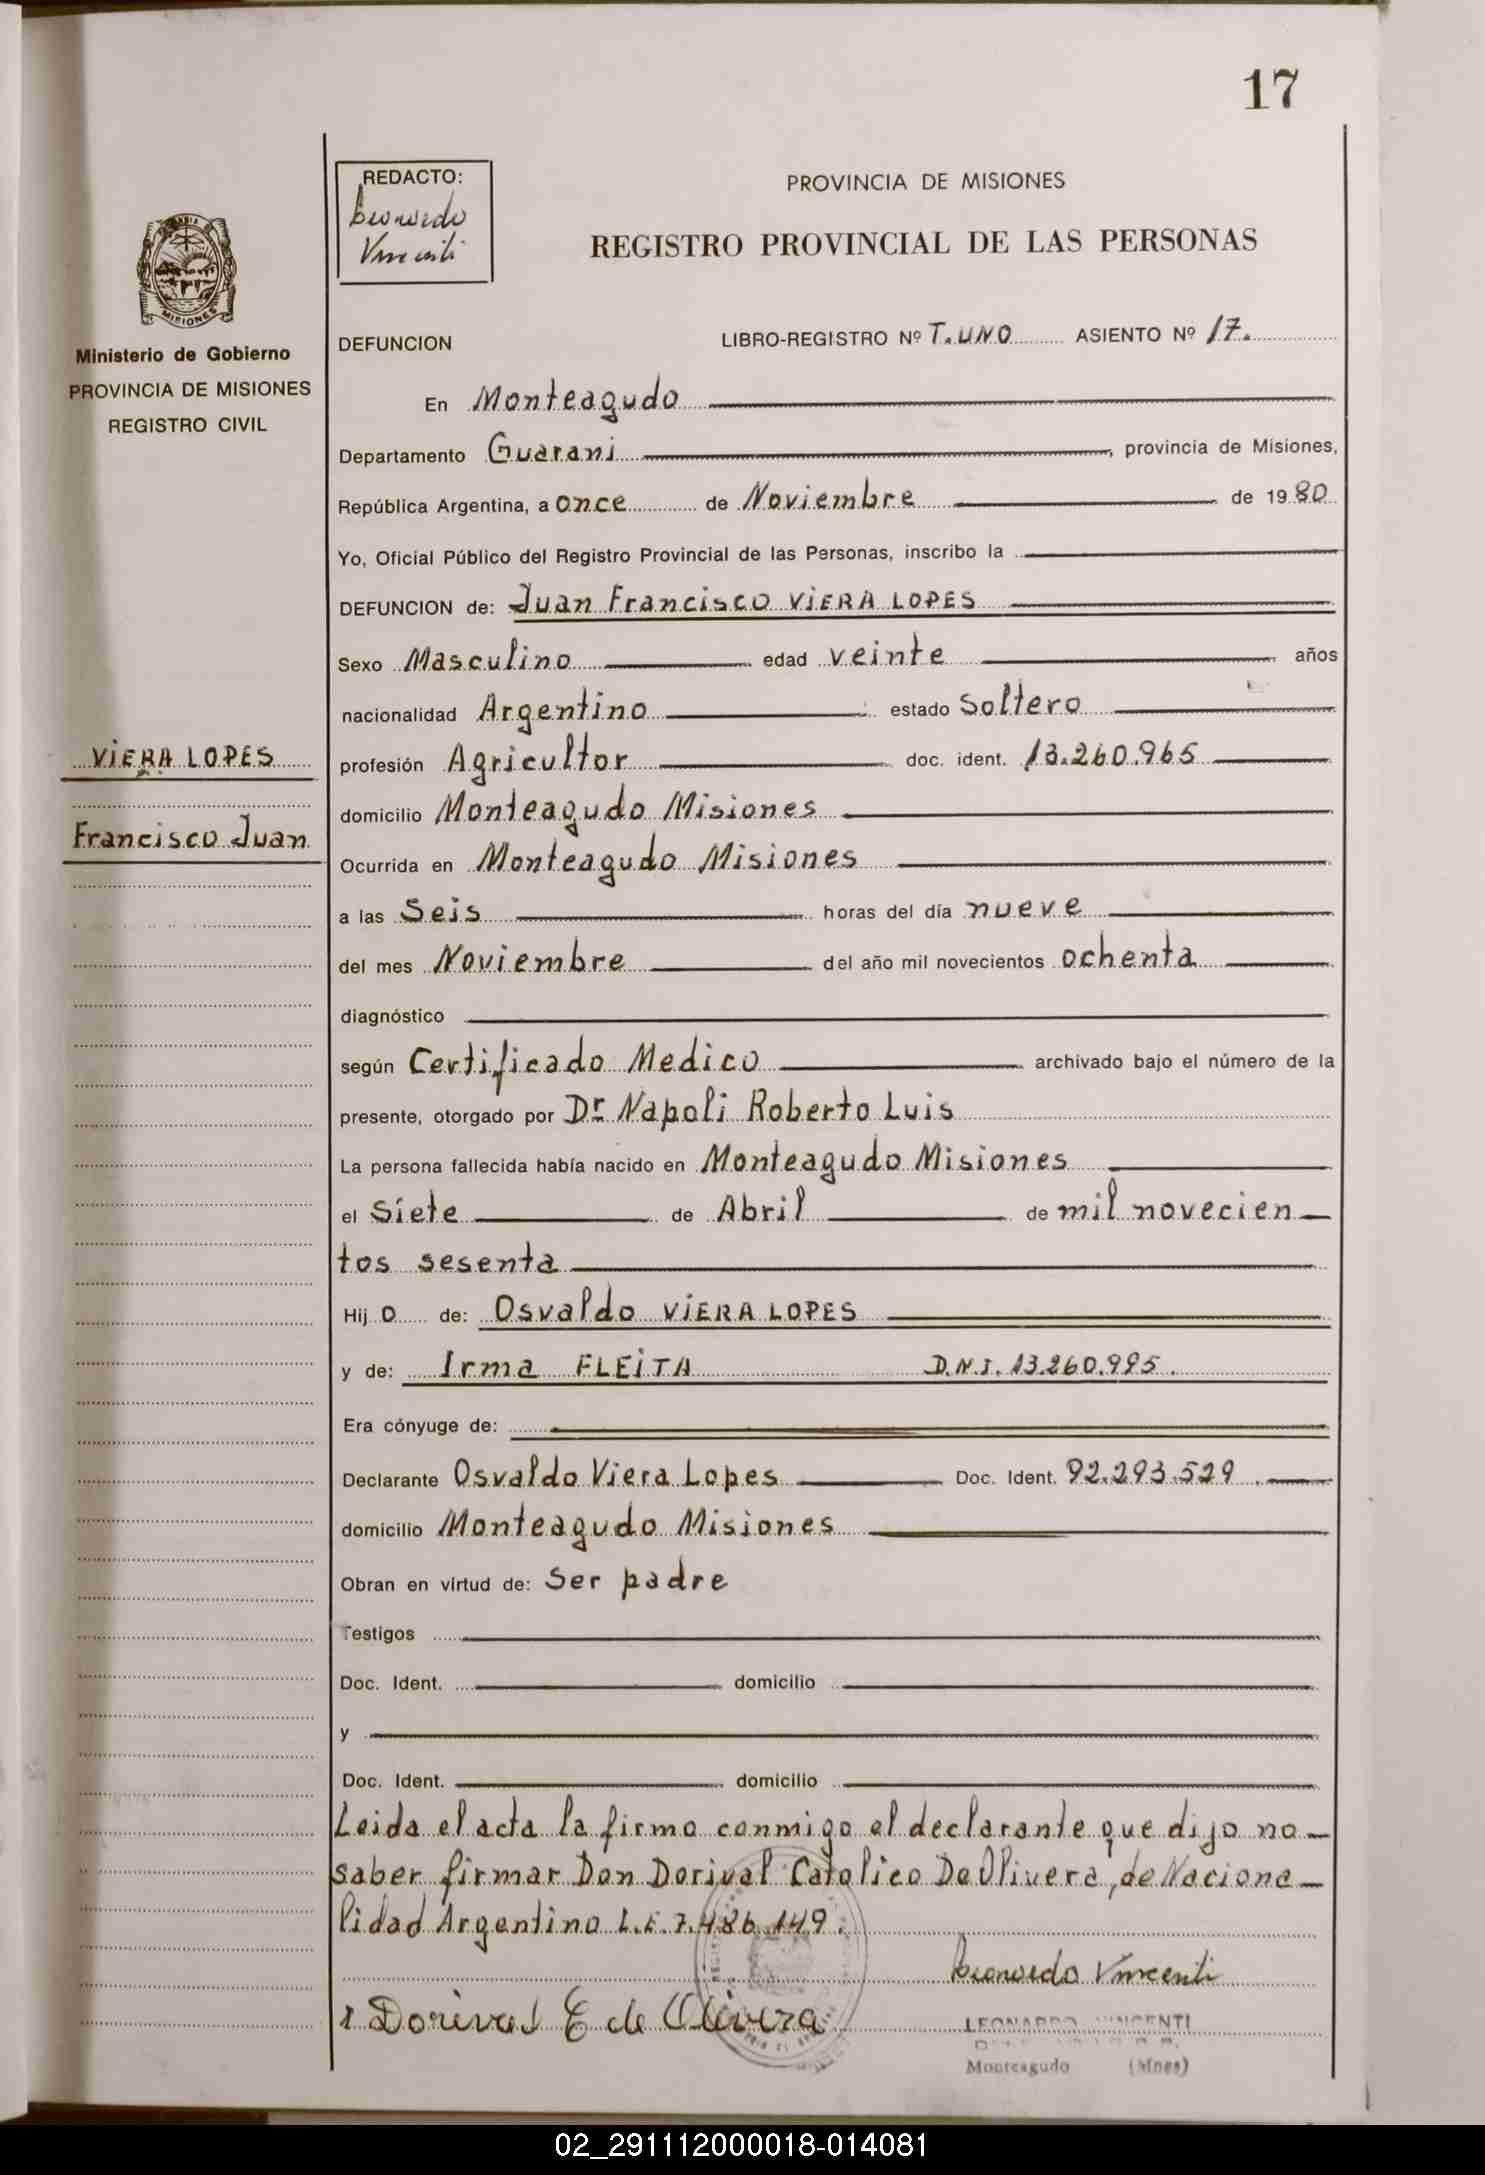 17
REDACTO:
Leonardo
Vincenti
PROVINCIA DE MISIONES
REGISTRO PROVINCIAL DE LAS PERSONAS
MISIONES
Ministerio de Gobierno
PROVINCIA DE MISIONES
REGISTRO CIVIL
DEFUNCION LIBRO-REGISTRO Nº T. UNO ASIENTO Nº 17.
En Monteagudo
Departamento Guarani, provincia de Misiones,
República Argentina, a once de Noviembre de 1980
Yo, Oficial Público del Registro Provincial de las Personas, inscribo la
DEFUNCION de: Juan Francisco VIERA LOPES
Sexo Masculino edad veinte años
nacionalidad Argentino estado Soltero
VIERA LOPES
profesión Agricultor doc. ident. 13.260.965
domicilio Monteagudo Misiones
Francisco Juan
Ocurrida en Monteagudo Misiones
a las Seis horas del día nueve
del mes Noviembre del año mil novecientos ochenta
diagnóstico
según Certificado Medico archivado bajo el número de la
presente, otorgado por Dr. Napoli Roberto Luis
La persona fallecida había nacido en Monteagudo Misiones
el Siete de Abril de mil novecien-
tos sesenta
Hij O de: Osvaldo VIERA LOPES
y de: Irma FLEITA D.N.I. 13.260.995.
Era cónyuge de:
Declarante Osvaldo Viera Lopes Doc. Ident. 92.293.529.
domicilio Monteagudo Misiones
Obran en virtud de: Ser padre
Testigos
Doc. Ident. domicilio
y
Doc. Ident. domicilio
Leida el acta la firmo conmigo el declarante que dijo no-
saber firmar Don Dorival Catolico De Olivera, de Naciona-
lidad Argentino L.E. 7.486.149.
Leonardo Vincenti
Dorival C de Olivera
LEONARDO VINCENTI
Monteagudo (Mnes)
02_291112000018-014081